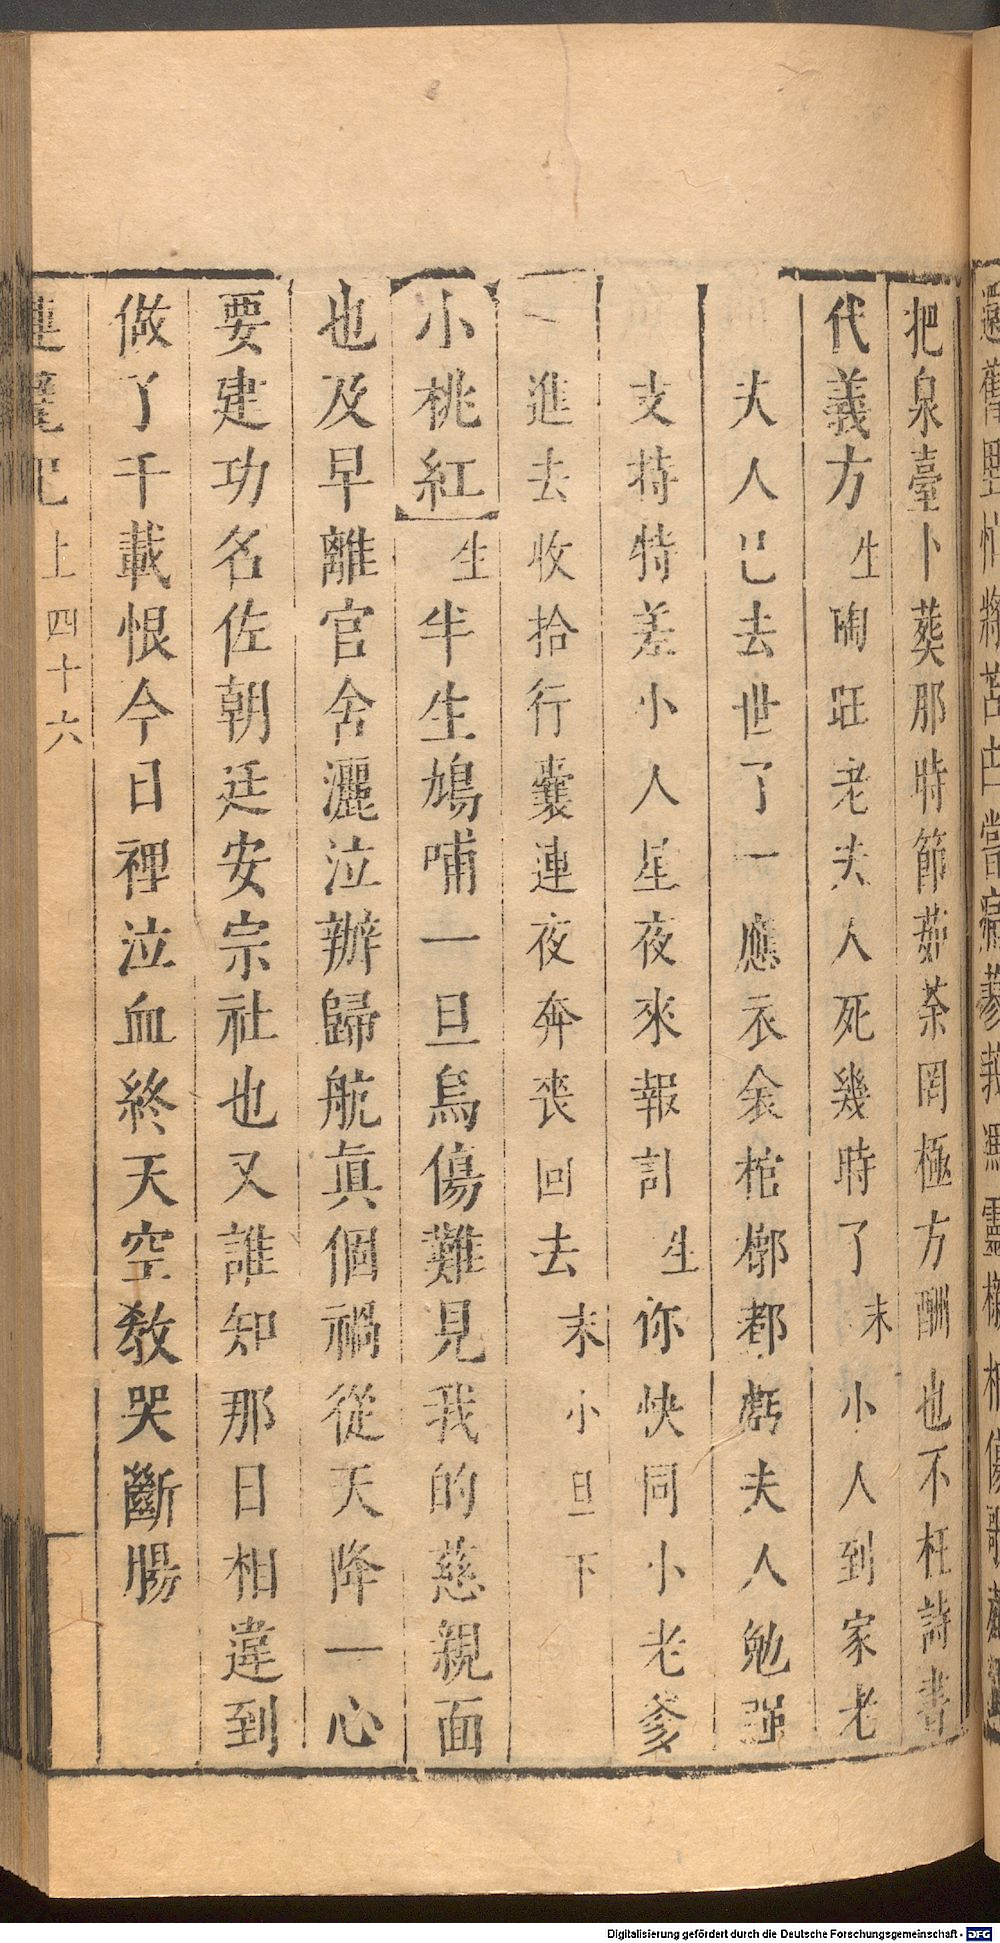 把泉臺卜葬那時節茹荼罔極方酬也不枉詩書
代義方生陶旺老夫人死幾時了末小人到家老
夫人已去世了一應衣衾棺槨都虧夫人勉强
支持特差小人星夜來報訃生你快同小老爹
進去收拾行囊連夜奔喪回去末小旦下
小桃紅生半生鳩哺一旦烏傷難見我的慈親面
也及早離官舍灑泣辦歸航眞個禍從天降一心
要建功名佐朝廷安宗社也又誰知那日相違到
做了千載恨今日裡泣血終天空敎哭斷腸
上 四十六
Digitalisierung gefördert durch die Deutsche Forschungsgemeinschaft - DFG